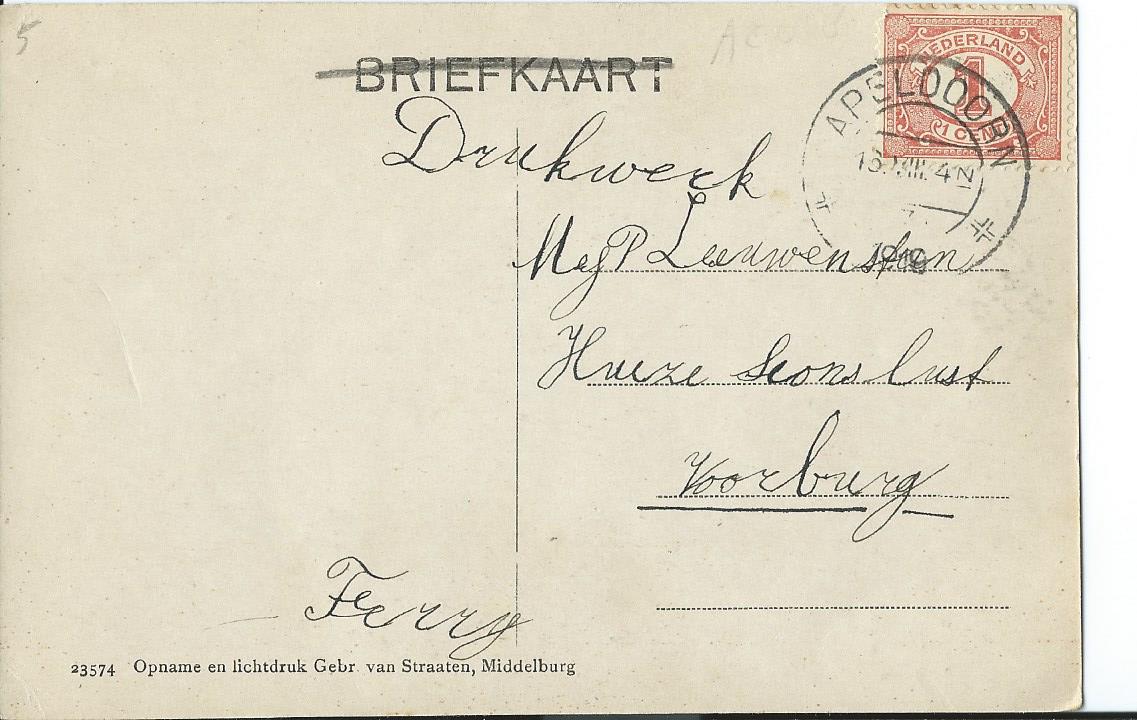 5
BRIEFKAART
NEDERLAND
1
1 CENT
APELDOORN
13.VIII. 4 N
1919
Drukwerk
Mej P Leeuwenstein
Huize Leons lust
Voorburg
Ferry
23574 Opname en lichtdruk Gebr. van Straaten, Middelburg